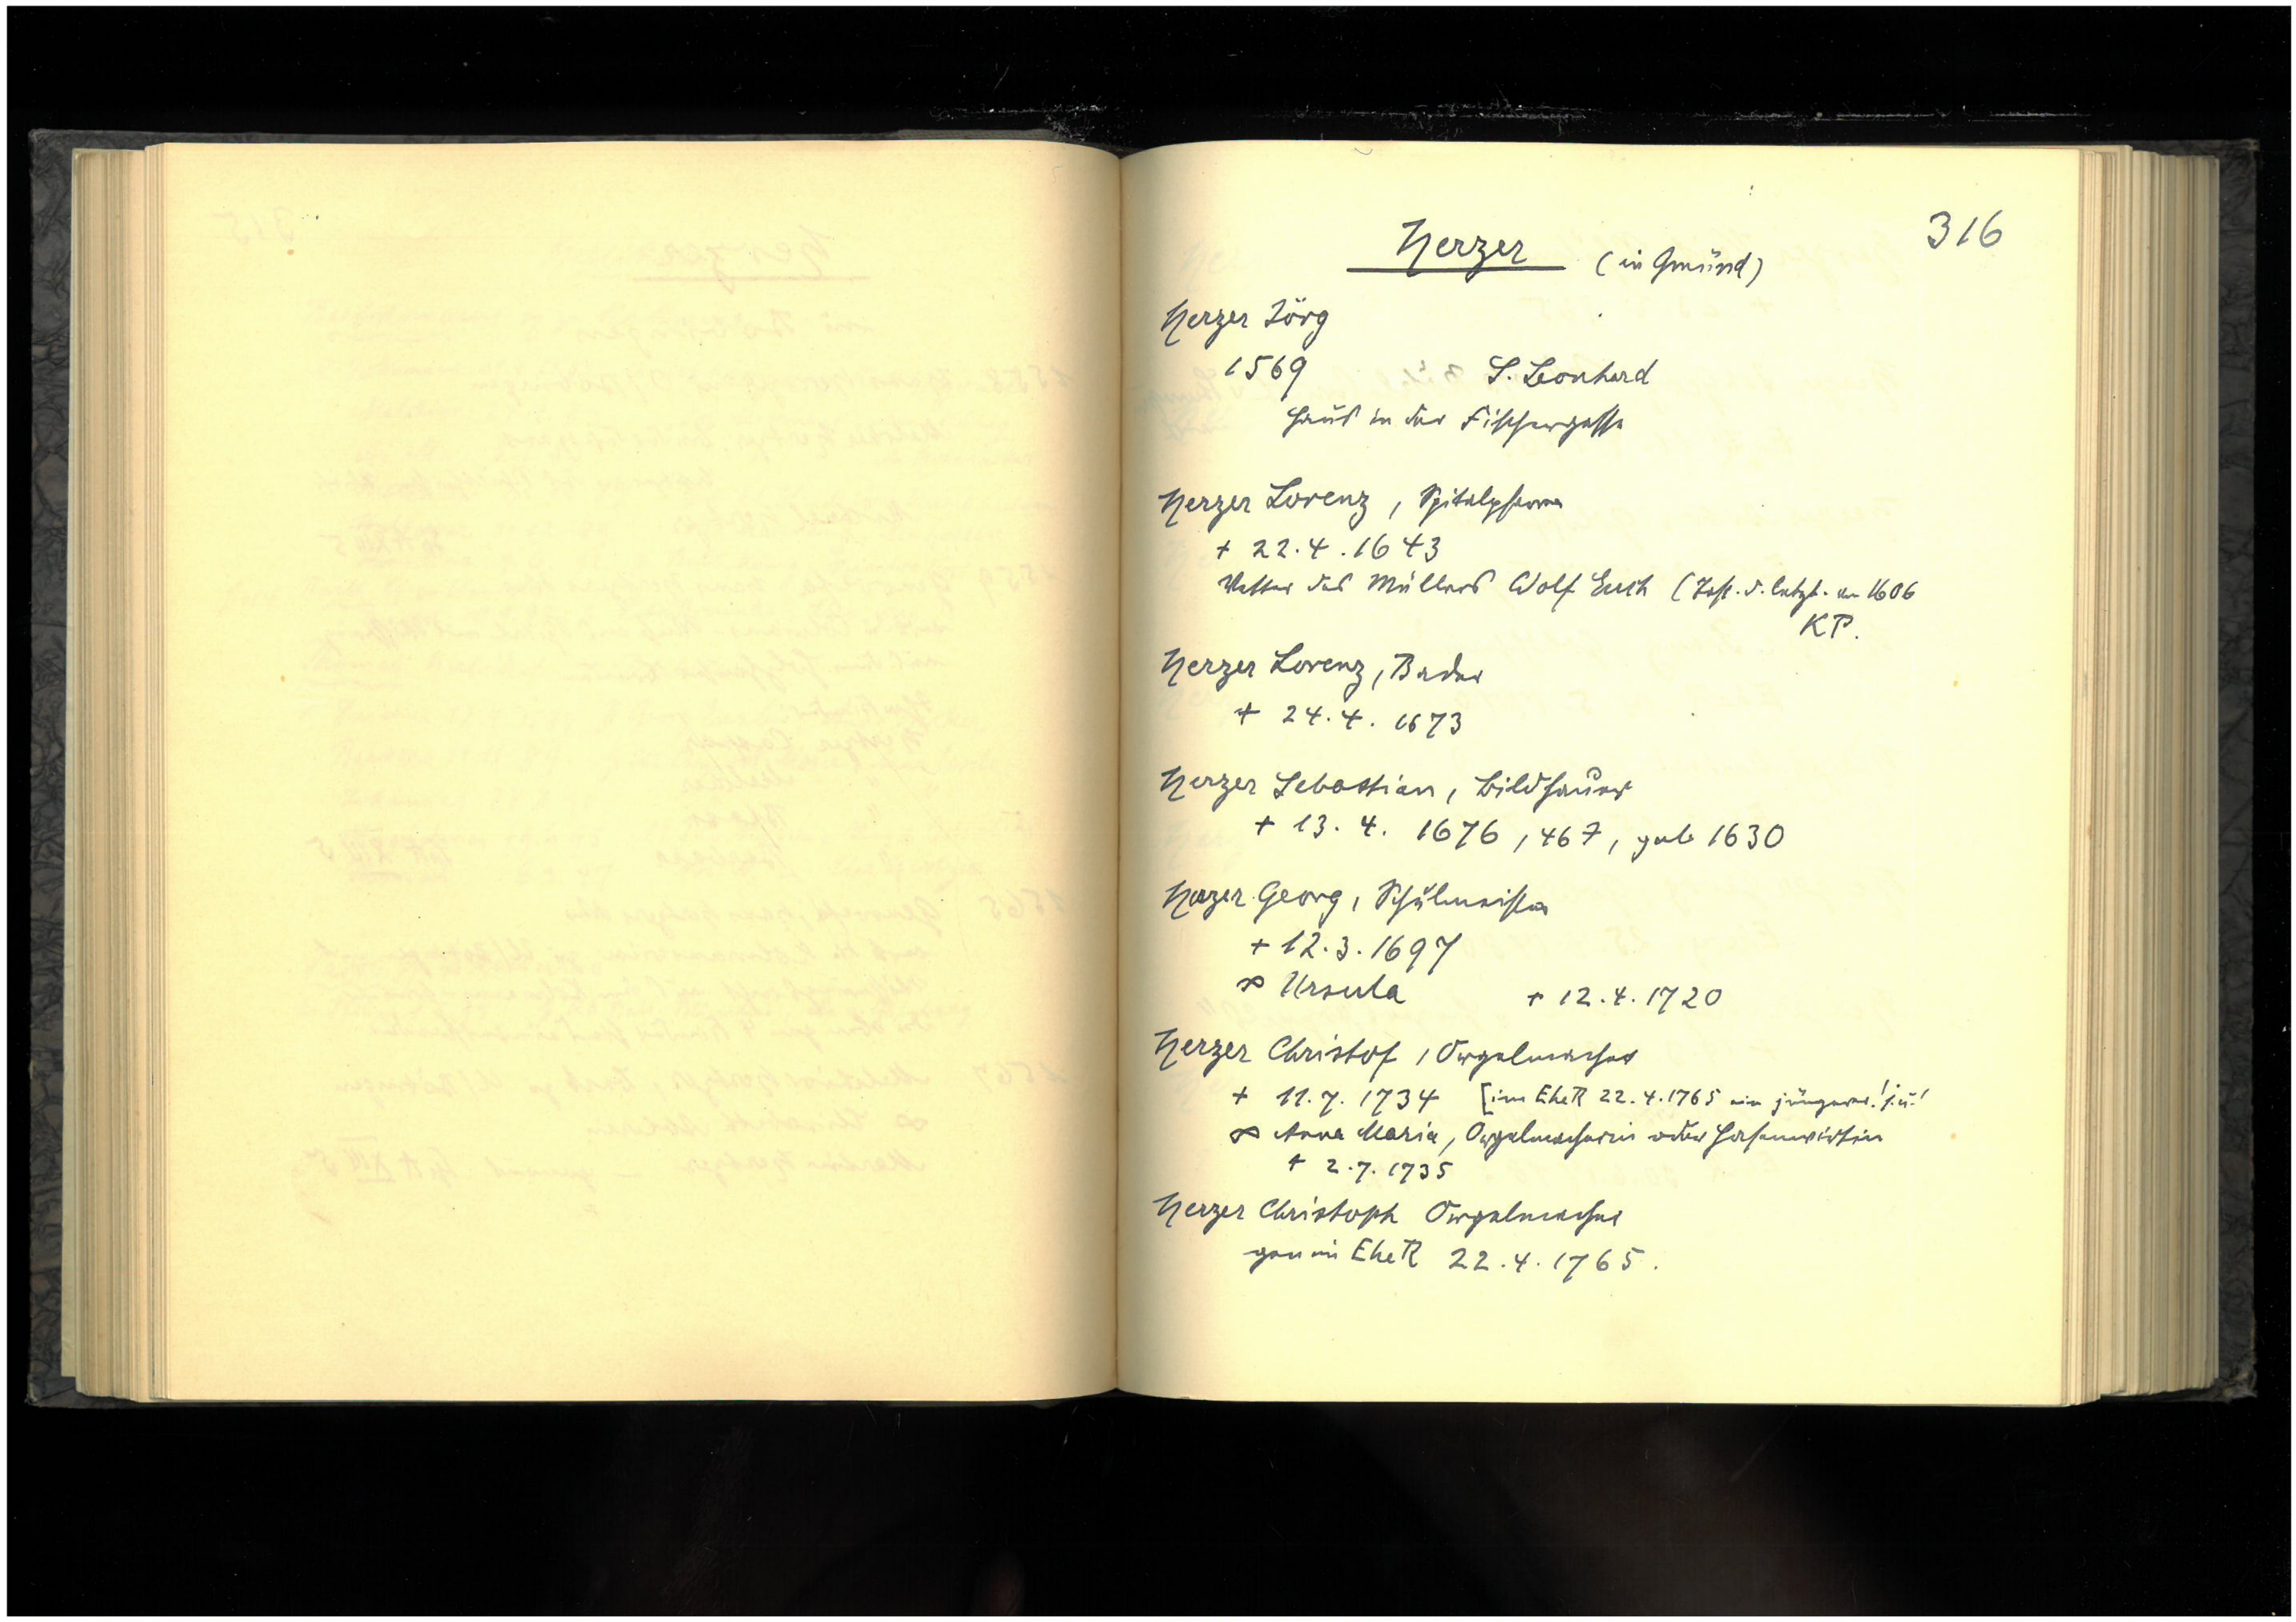 316
Herzer (in Gmünd)
Herzer Jörg
1569 S. Leonhard
Haus in der Fischergasse
Herzer Lorenz, Spitalpfarrer
+ 22.4.1643
Vetter des Müllers Wolf (Test. d. letzt. 1606
KP.
Herzer Lorenz, Bader
+ 24.4.1673
Herzer Sebastian, Bildhauer
+ 13.4. 1676, 46 J, geb 1630
Herzer Georg, Schulmeister
+ 12.3.1697
∞ Ursula + 12.4.1720
Herzer Christof, Orgelmacher
+ 11.7.1734 [im EheR 22.4.1765 ein jüngerer! s.u.!
∞ Anna Maria, Orgelmacherin oder Hasenwirtin
+ 2.7.1735
Herzer Christoph Orgelmacher
gen im EheR 22.4.1765.